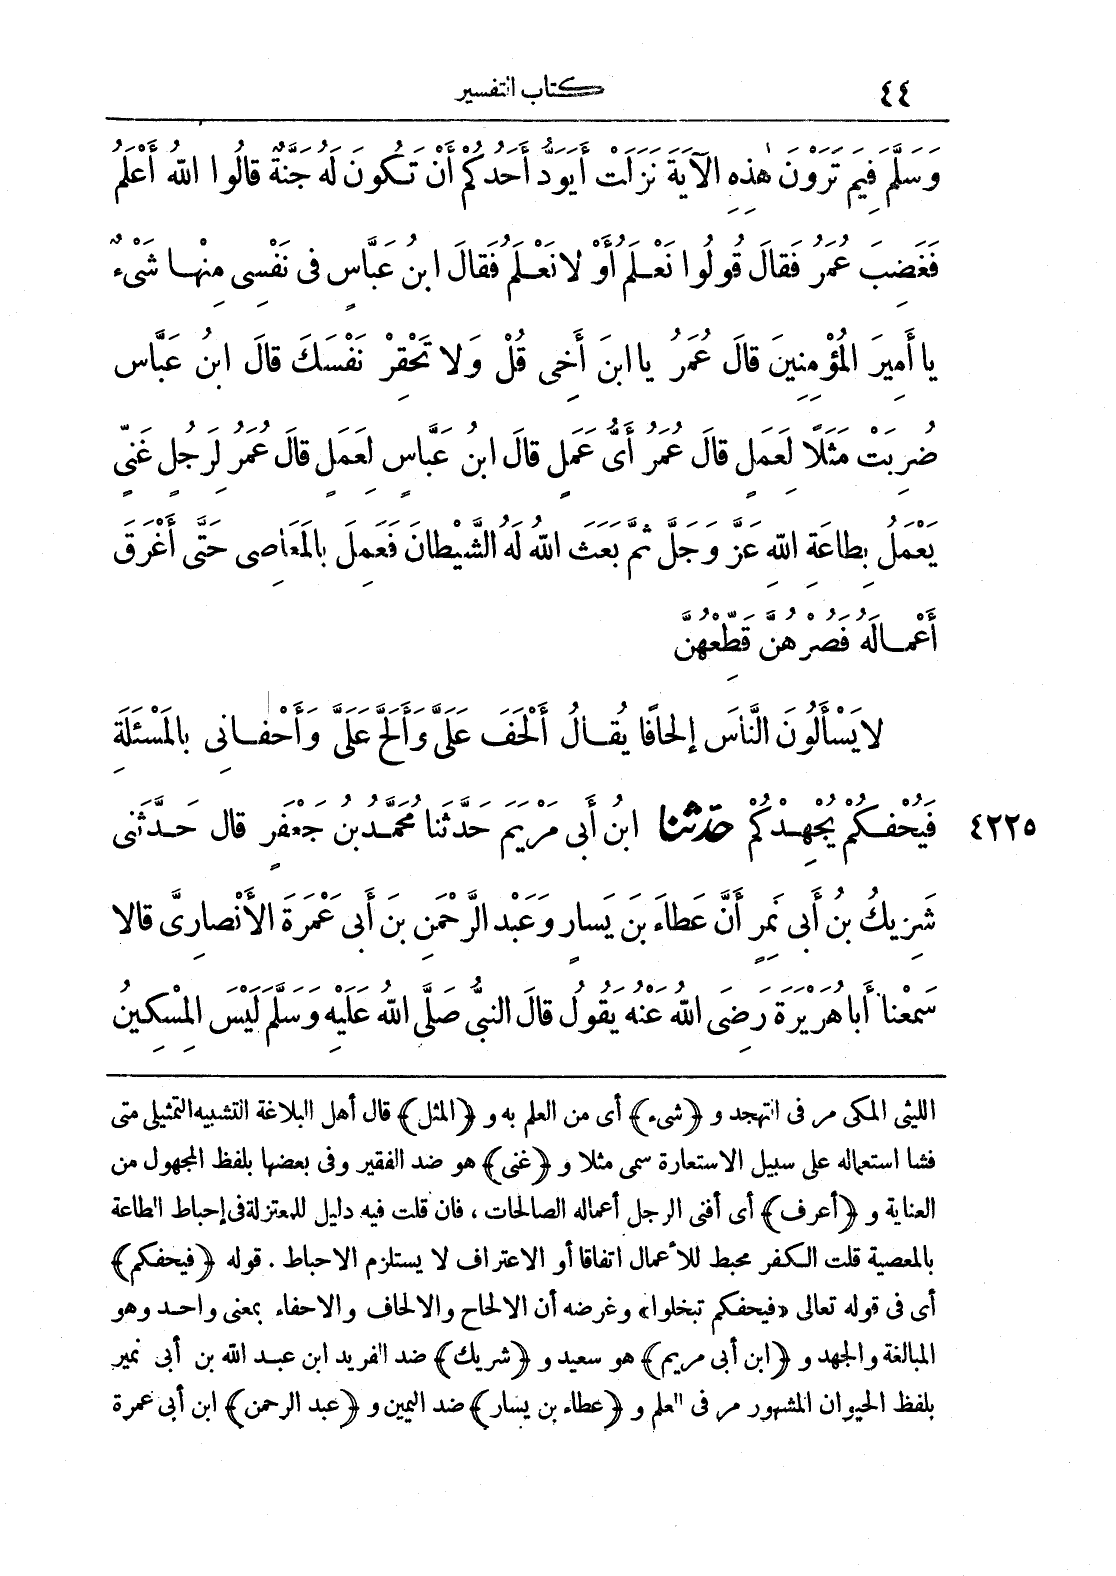 ٤٤ كتاب التفسير
وَسَلَّمَ فِيمَ تَرَوْنَ هٰذِهِ الْآيَةَ نَزَلَتْ أَيَوَدُّ أَحَدُكُمْ أَنْ تَكُونَ لَهُ جَنَّةٌ قَالُوا اللهُ أَعْلَمُ
فَغَضِبَ عُمَرُ فَقَالَ قُولُوا نَعْلَمُ أَوْ لَا نَعْلَمُ فَقَالَ ابنُ عَبَّاسٍ فى نَفْسِى مِنْهَا شَىْءٌ
يا أَمِيرَ الْمُؤْمِنِينَ قَالَ عُمَرُ يا ابنَ أَخِى قُلْ وَلَا تَحْقِرْ نَفْسَكَ قَالَ ابنُ عَبَّاس
ضُرِبَتْ مَثَلًا لِعَمَلٍ قَالَ عُمَرُ أَىُّ عَمَلٍ قَالَ ابنُ عَبَّاسٍ لِعَمَلٍ قَالَ عُمَرُ لِرَجُلٍ غَنِىٍّ
يَعْمَلُ بِطَاعَةِ اللهِ عَزَّ وَجَلَّ ثُمَّ بَعَثَ اللهُ لَهُ الشَّيْطَانَ فَعَمِلَ بِالْمَعَاصِى حَتَّى أَغْرَقَ
أَعْمَالَهُ فَصُرْهُنَّ قَطِّعْهُنَّ
لَا يَسْأَلُونَ النَّاسَ إِلْحَافًا يُقَالُ أَلْحَفَ عَلَىَّ وَأَلَحَّ عَلَىَّ وَأَحْفَانِى بِالْمَسْئَلَةِ
فَيُحْفِكُمْ يُجْهِدْكُمْ حَدَّثَنَا ابنُ أَبى مَرْيَمَ حَدَّثَنَا مُحَمَّدُ بنُ جَعْفَرٍ قال حَدَّثَنى ٤٢٢٥
شَرِيكُ بنُ أَبى نَمِرٍ أَنَّ عَطَاءَ بنَ يَسَارٍ وَعَبْدَ الرَّحْمَنِ بنَ أَبى عَمْرَةَ الْأَنْصَارِىَّ قالا
سَمِعْنَا أَبا هُرَيْرَةَ رَضِىَ اللهُ عَنْهُ يَقُولُ قَالَ النبىُّ صَلَّى اللهُ عَلَيْهِ وَسَلَّمَ لَيْسَ الْمِسْكِينُ
الليثى المكى مر فى التهجد و ﴿شىء﴾ أى من العلم به و ﴿المثل﴾ قال أهل البلاغة التشبيه التمثيلى متى
فشا استعماله على سبيل الاستعارة سمى مثلا و ﴿غنى﴾ هو ضد الفقير وفى بعضها بلفظ المجهول من
العناية و ﴿أعرف﴾ أى أفنى الرجل أعماله الصالحات ، فان قلت فيه دليل للمعتزلة فى إحباط الطاعة
بالمعصية قلت الكفر محبط للأعمال اتفاقا أو الاعتراف لا يستلزم الاحباط . قوله ﴿فيحفكم﴾
أى فى قوله تعالى «فيحفكم تبخلوا» وغرضه أن الالحاح والالحاف والاحفاء بمعنى واحد وهو
المبالغة والجهد و ﴿ابن أبى مريم﴾ هو سعيد و ﴿شريك﴾ ضد الفريد ابن عبد الله بن أبى نمير
بلفظ الحيوان المشهور مر فى العلم و ﴿عطاء بن يسار﴾ ضد اليمين و ﴿عبد الرحمن﴾ ابن أبى عمرة